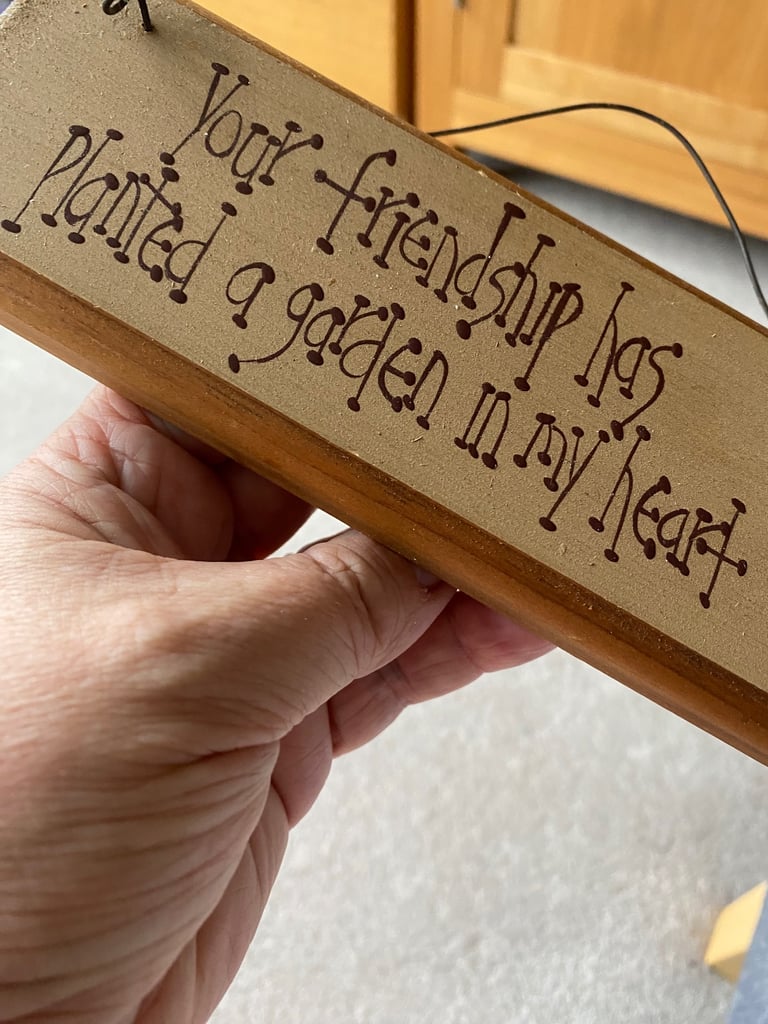 Your friendship has
planted a garden in my heart